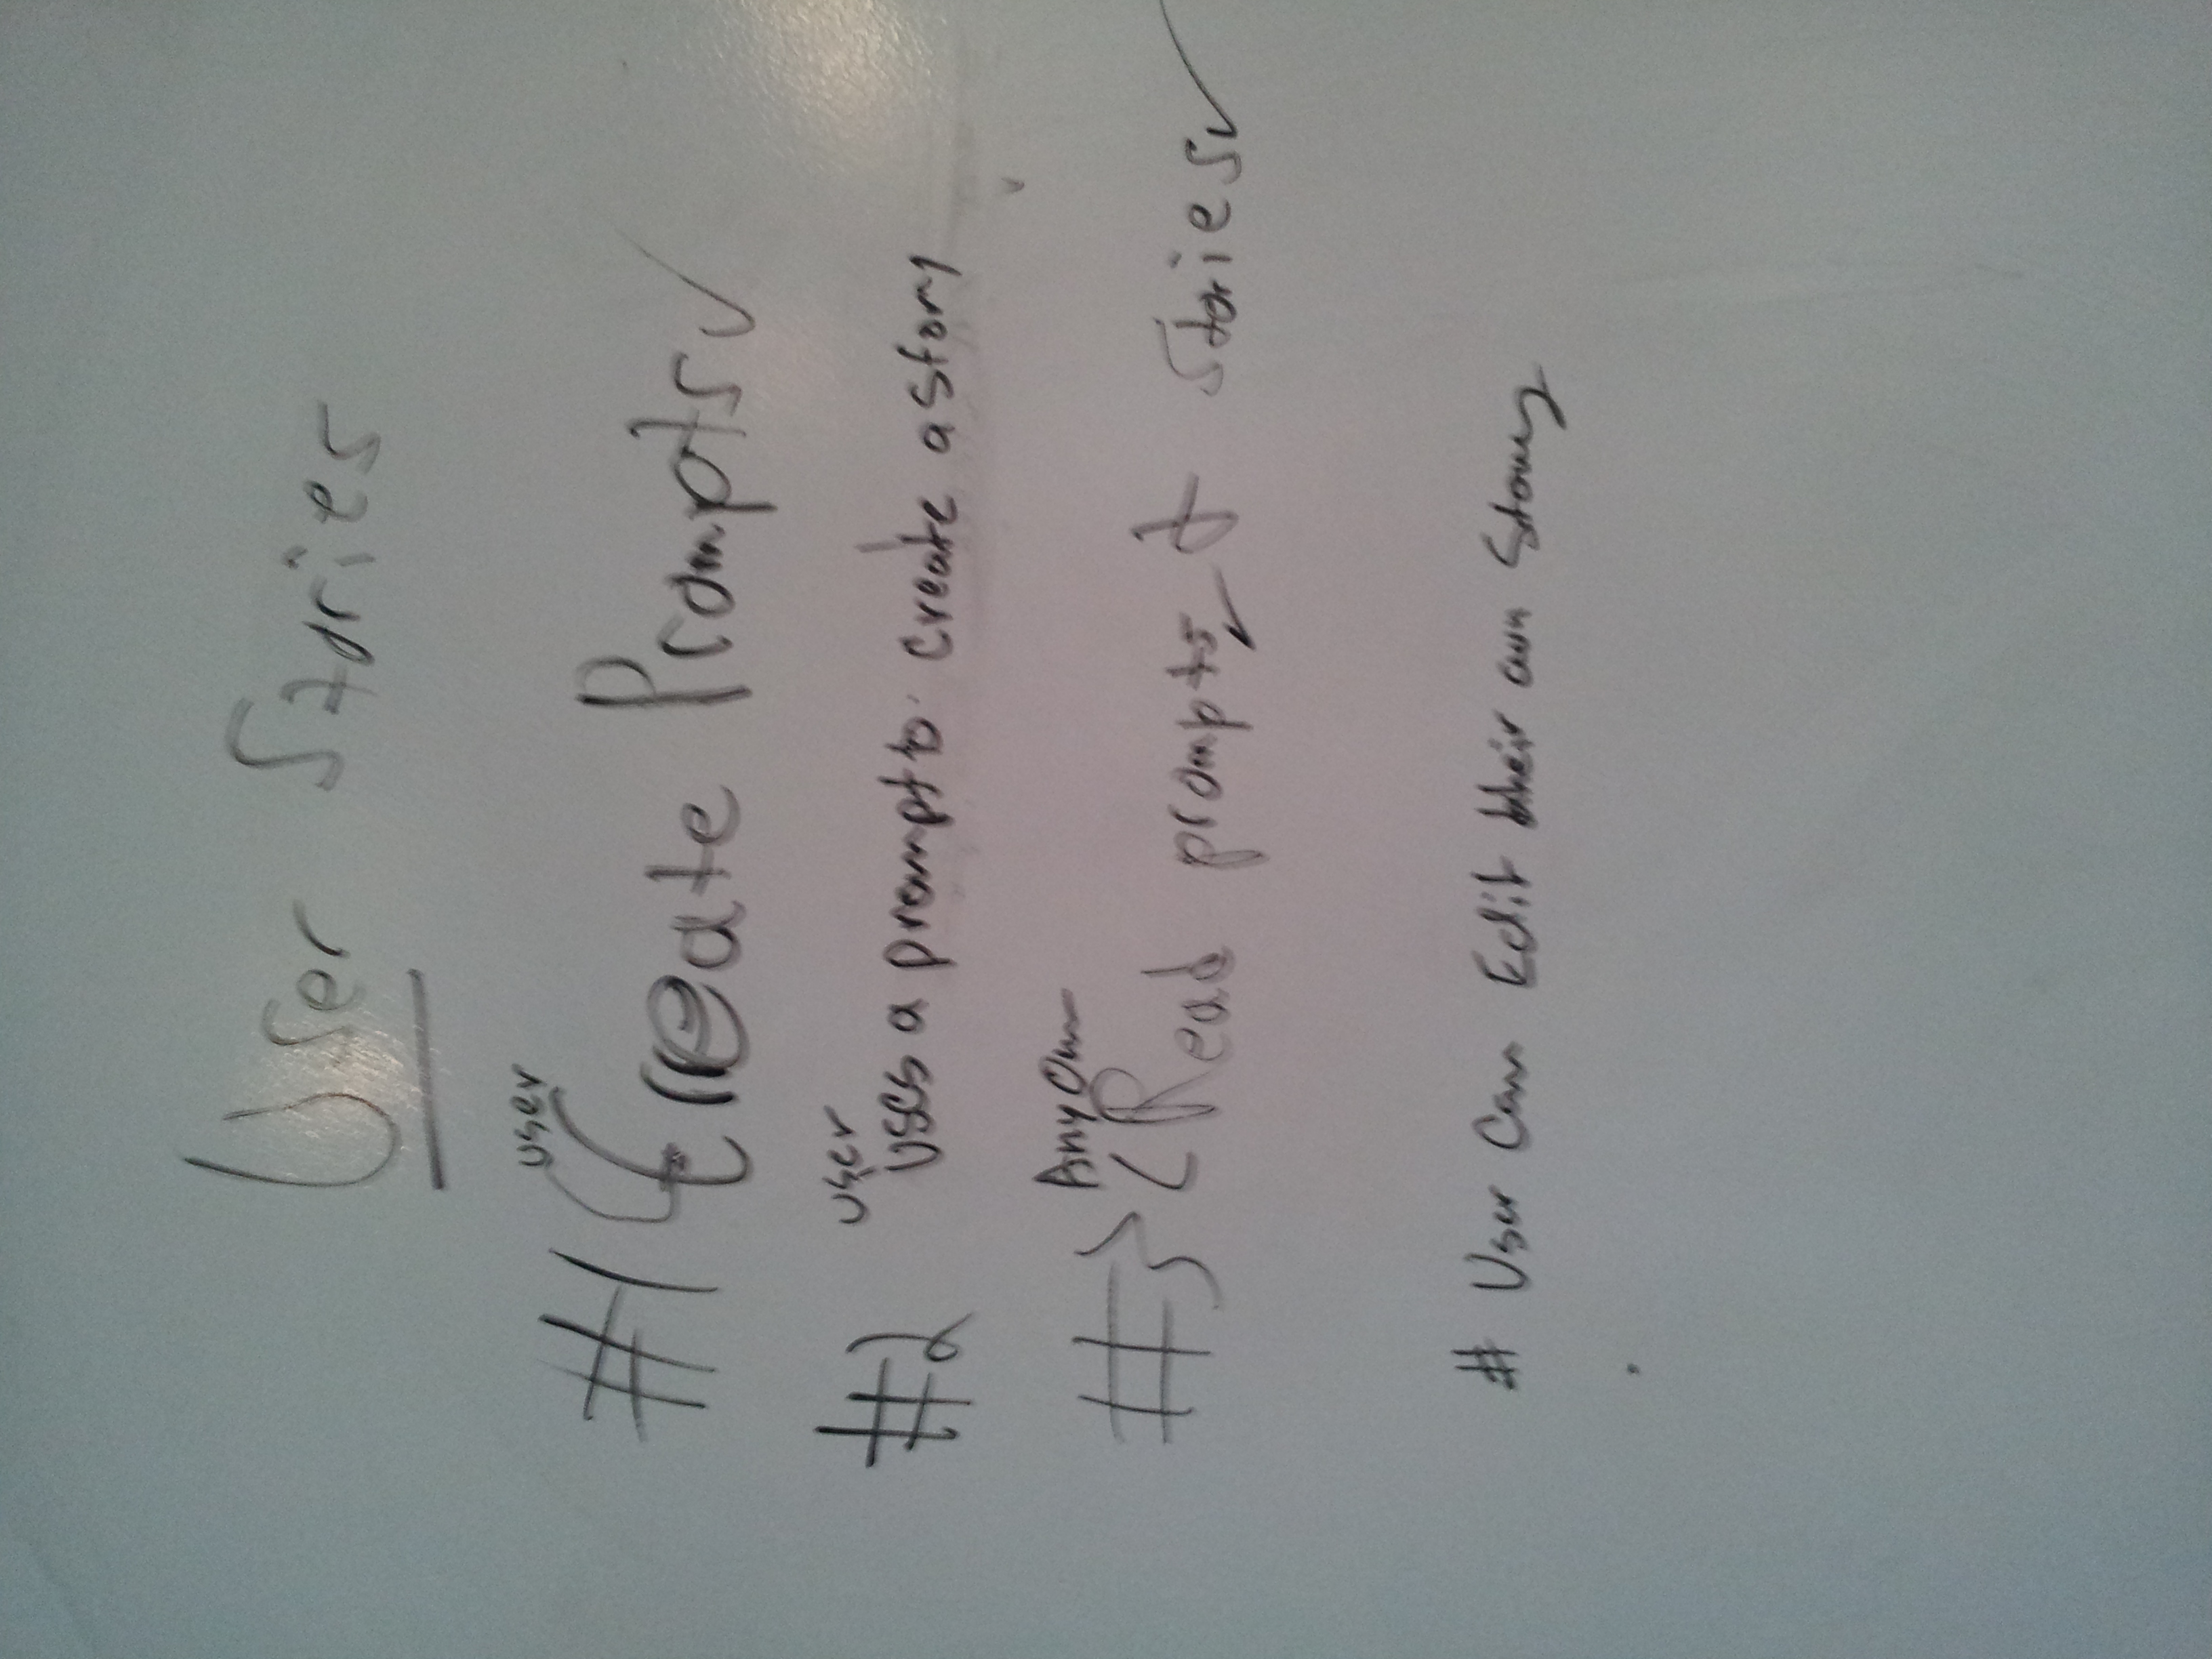 User Stories
user
#1 Create Prompts ✓
user
#2 uses a prompt to create a story
Anyone
#3 (Read prompts ✓ & stories ✓
# User Can Edit their own Story